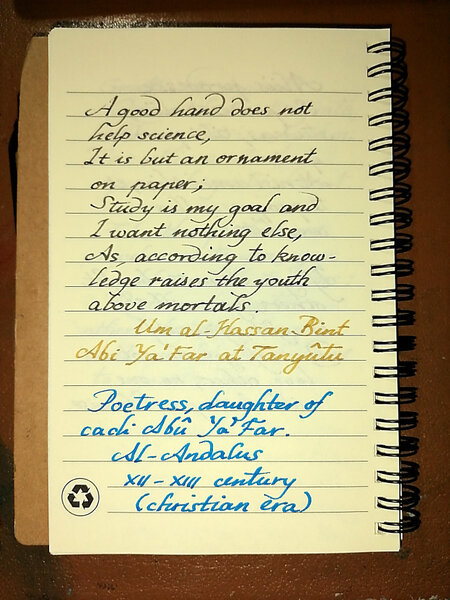 A good hand does not
help science,
It is but an ornament
on paper;
Study is my goal and
I want nothing else,
As, according to know-
ledge raises the youth
above mortals.
Um al-Hassan Bint
Abi Ya'Far at Tanyûtu
Poetress, daughter of
cadi Abû Ya'Far.
Al-Andalus
XII-XIII century
(christian era)